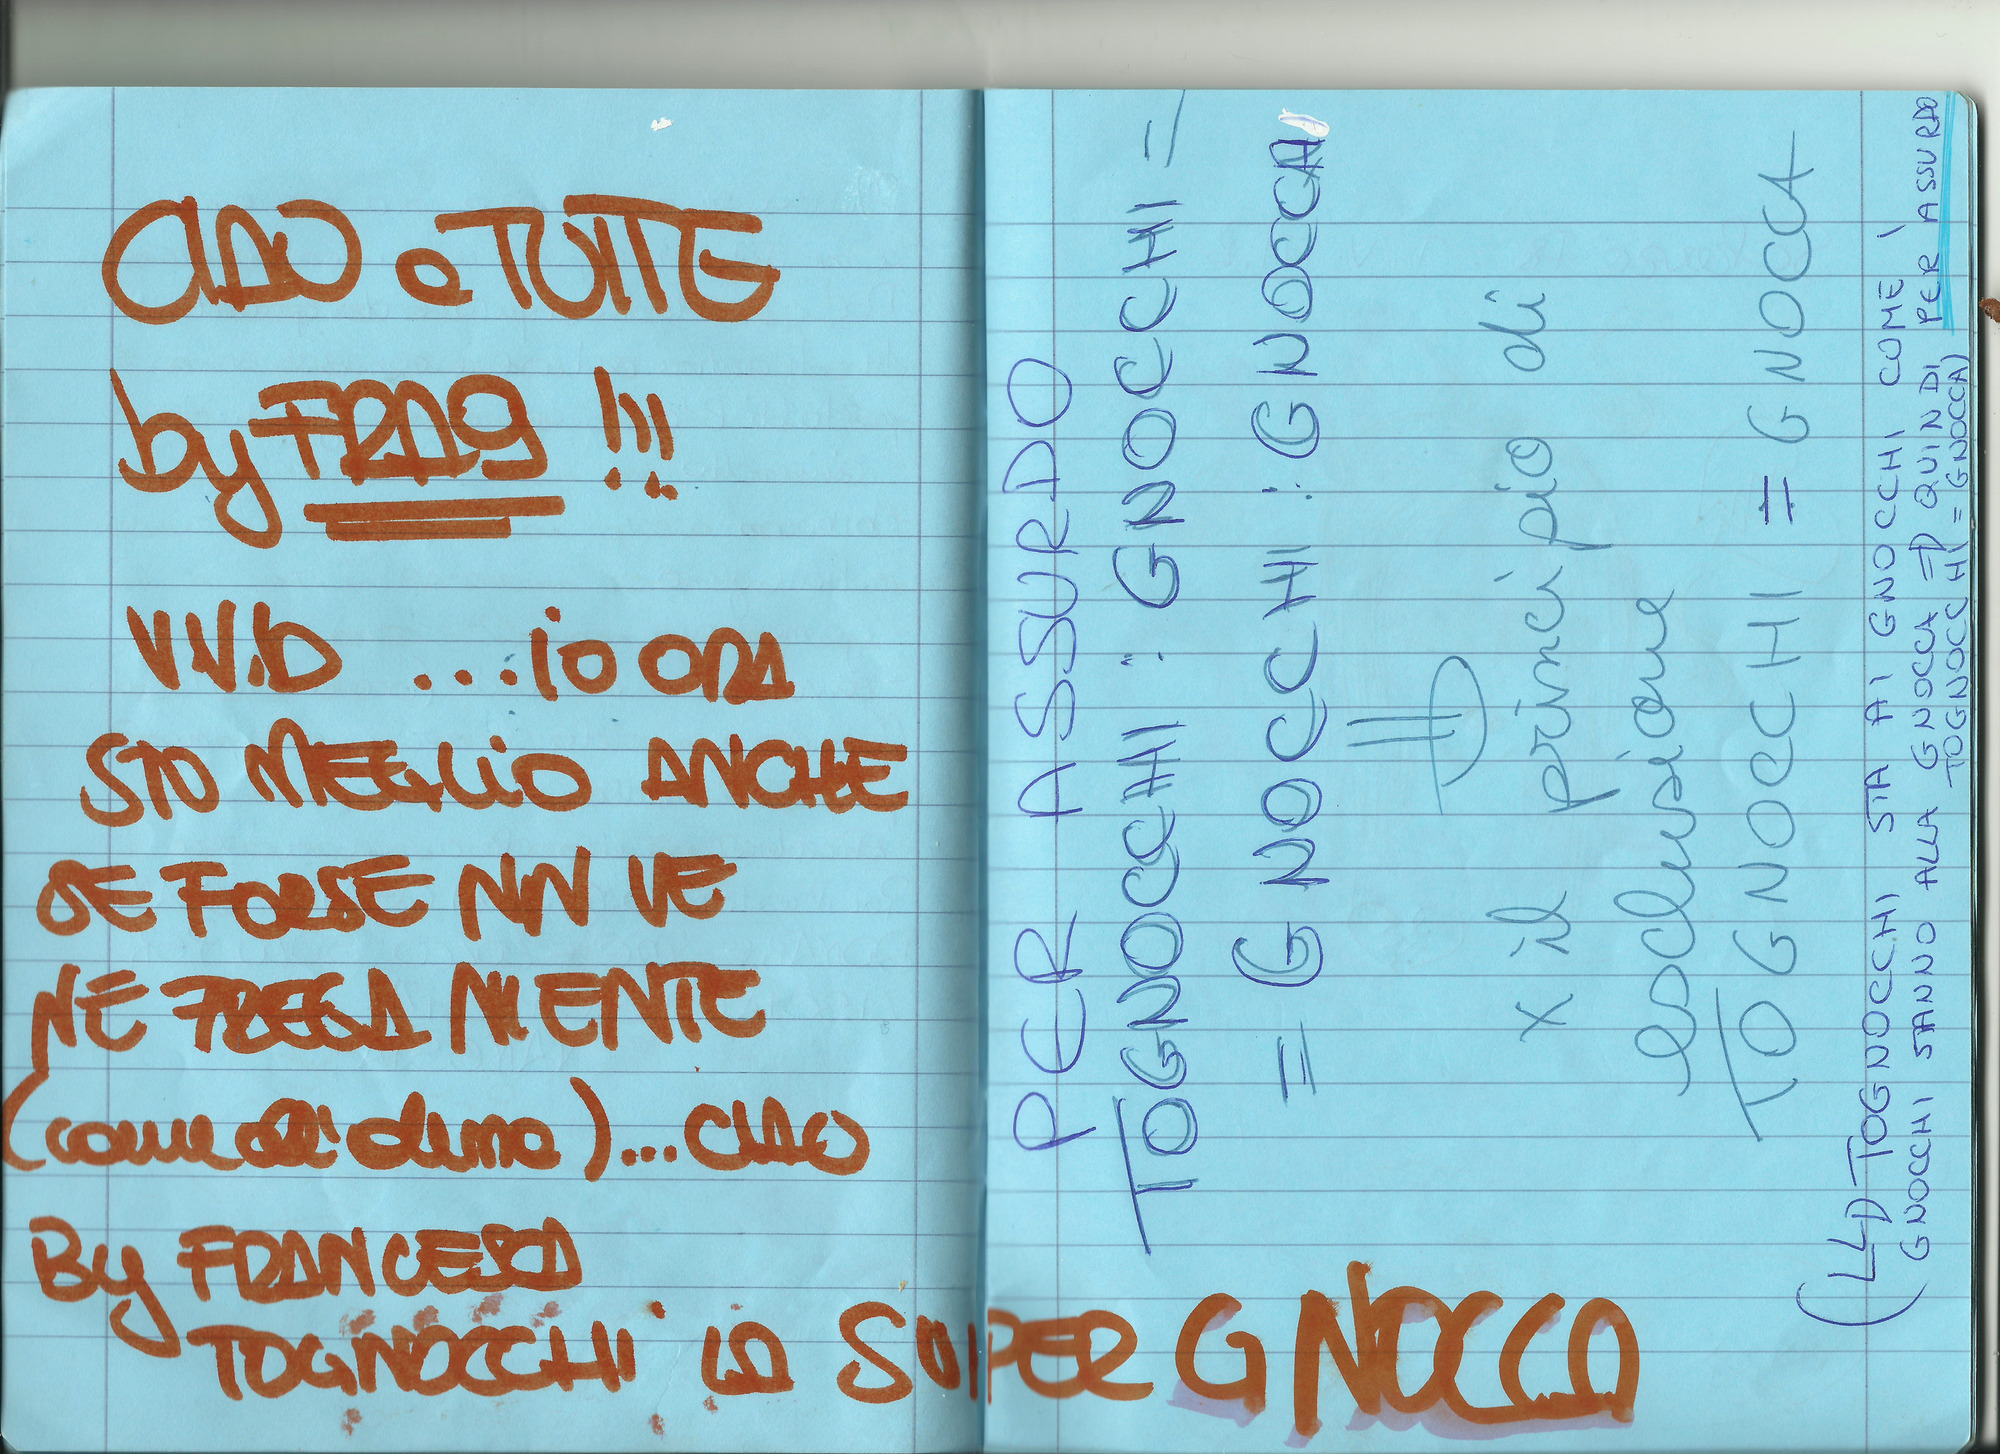 CIAO a TUTTE
by FRAg !!!
VVB ...io ORA
STO MEGLIO ANCHE
SE FORSE NN VE
NE FREGA NIENTE
(come all' )...CIAO
By FRANCESCA
TOGNOCCHI LA SUPER GNOCCA
PER ASSURDO
TOGNOCCHI : GNOCCHI =
= GNOCCHI : GNOCCA
x il principio di
esclusione
TOGNOCCHI = GNOCCA
(TOGNOCCHI STA AI GNOCCHI COME I
GNOCCHI STANNO ALLA GNOCCA => QUINDI PER ASSURDO
TOGNOCCHI = GNOCCA)